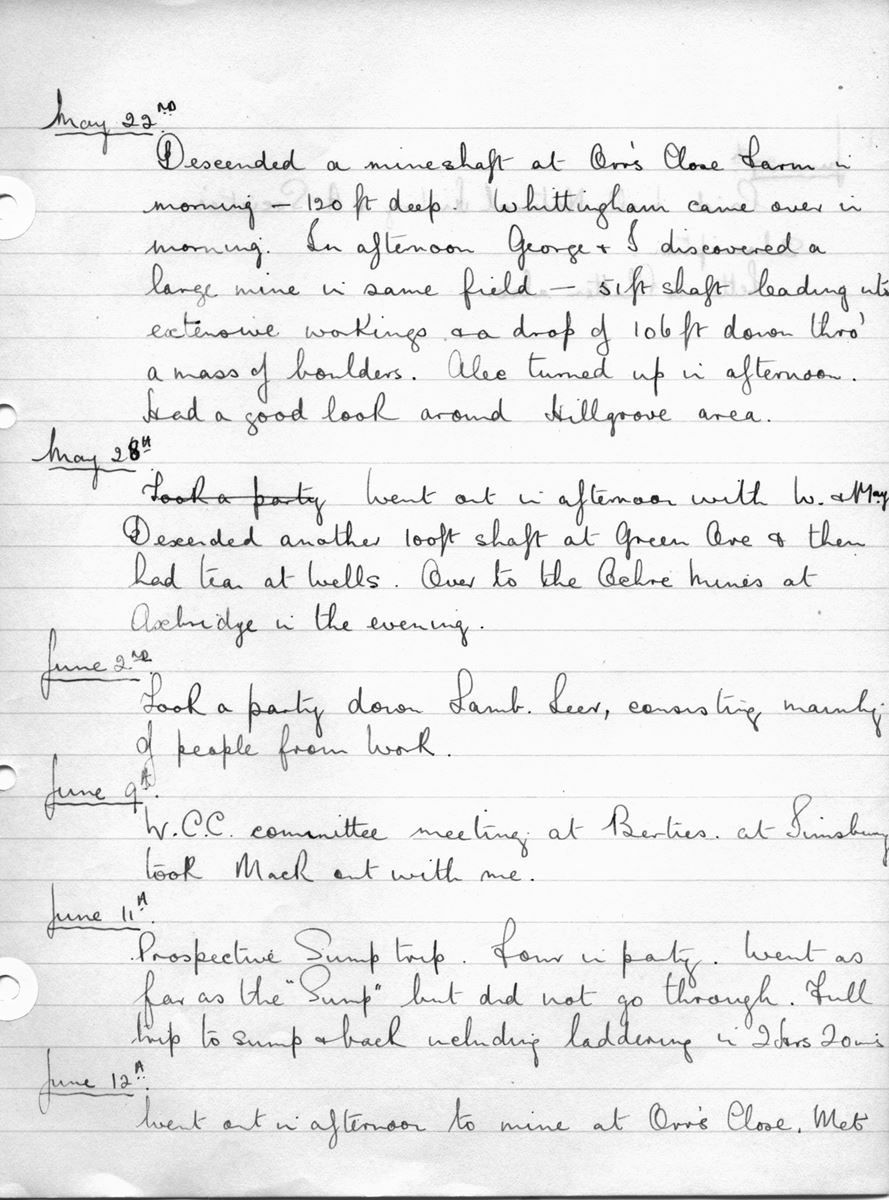 May 22ND
Descended a mineshaft at Orr's Close Farm in
morning – 120 ft deep. Whittingham came over in
morning. In afternoon George + I discovered a
large mine in same field – 51 ft shaft leading into
extensive workings & a drop of 106 ft down thro'
a mass of boulders. Alec turned up in afternoon.
Had a good look around Hillgrove area.
May 28th
Took a party Went out in afternoon with W. & May
Descended another 100ft shaft at Green Ore & then
had tea at Wells. Over to the Ochre Mines at
Axbridge in the evening.
June 2ND
Took a party down Lamb Leer, consisting mainly
of people from work.
June 9th
W.C.C. committee meeting at Berties. at Timsbury
took Mack out with me.
June 11th
Prospective Sump trip. Four in party. Went as
far as the "Sump" but did not go through. Full
trip to sump & back including laddering in 2 hrs 20 mins
June 12th
Went out in afternoon to mine at Orr's Close. Met